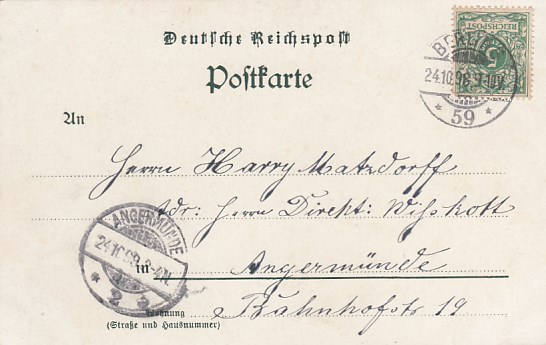 Deutsche Reichspost
Postkarte
BERLIN
24.10.98
* 59 *
REICHSPOST
5
An
Herrn Harry Matzdorff
Adr: Herrn Direkt:
in Angermünde
Bahnhofstr 19
Wohnung
(Straße und Hausnummer)
ANGERMÜNDE
24.10.98
* 2